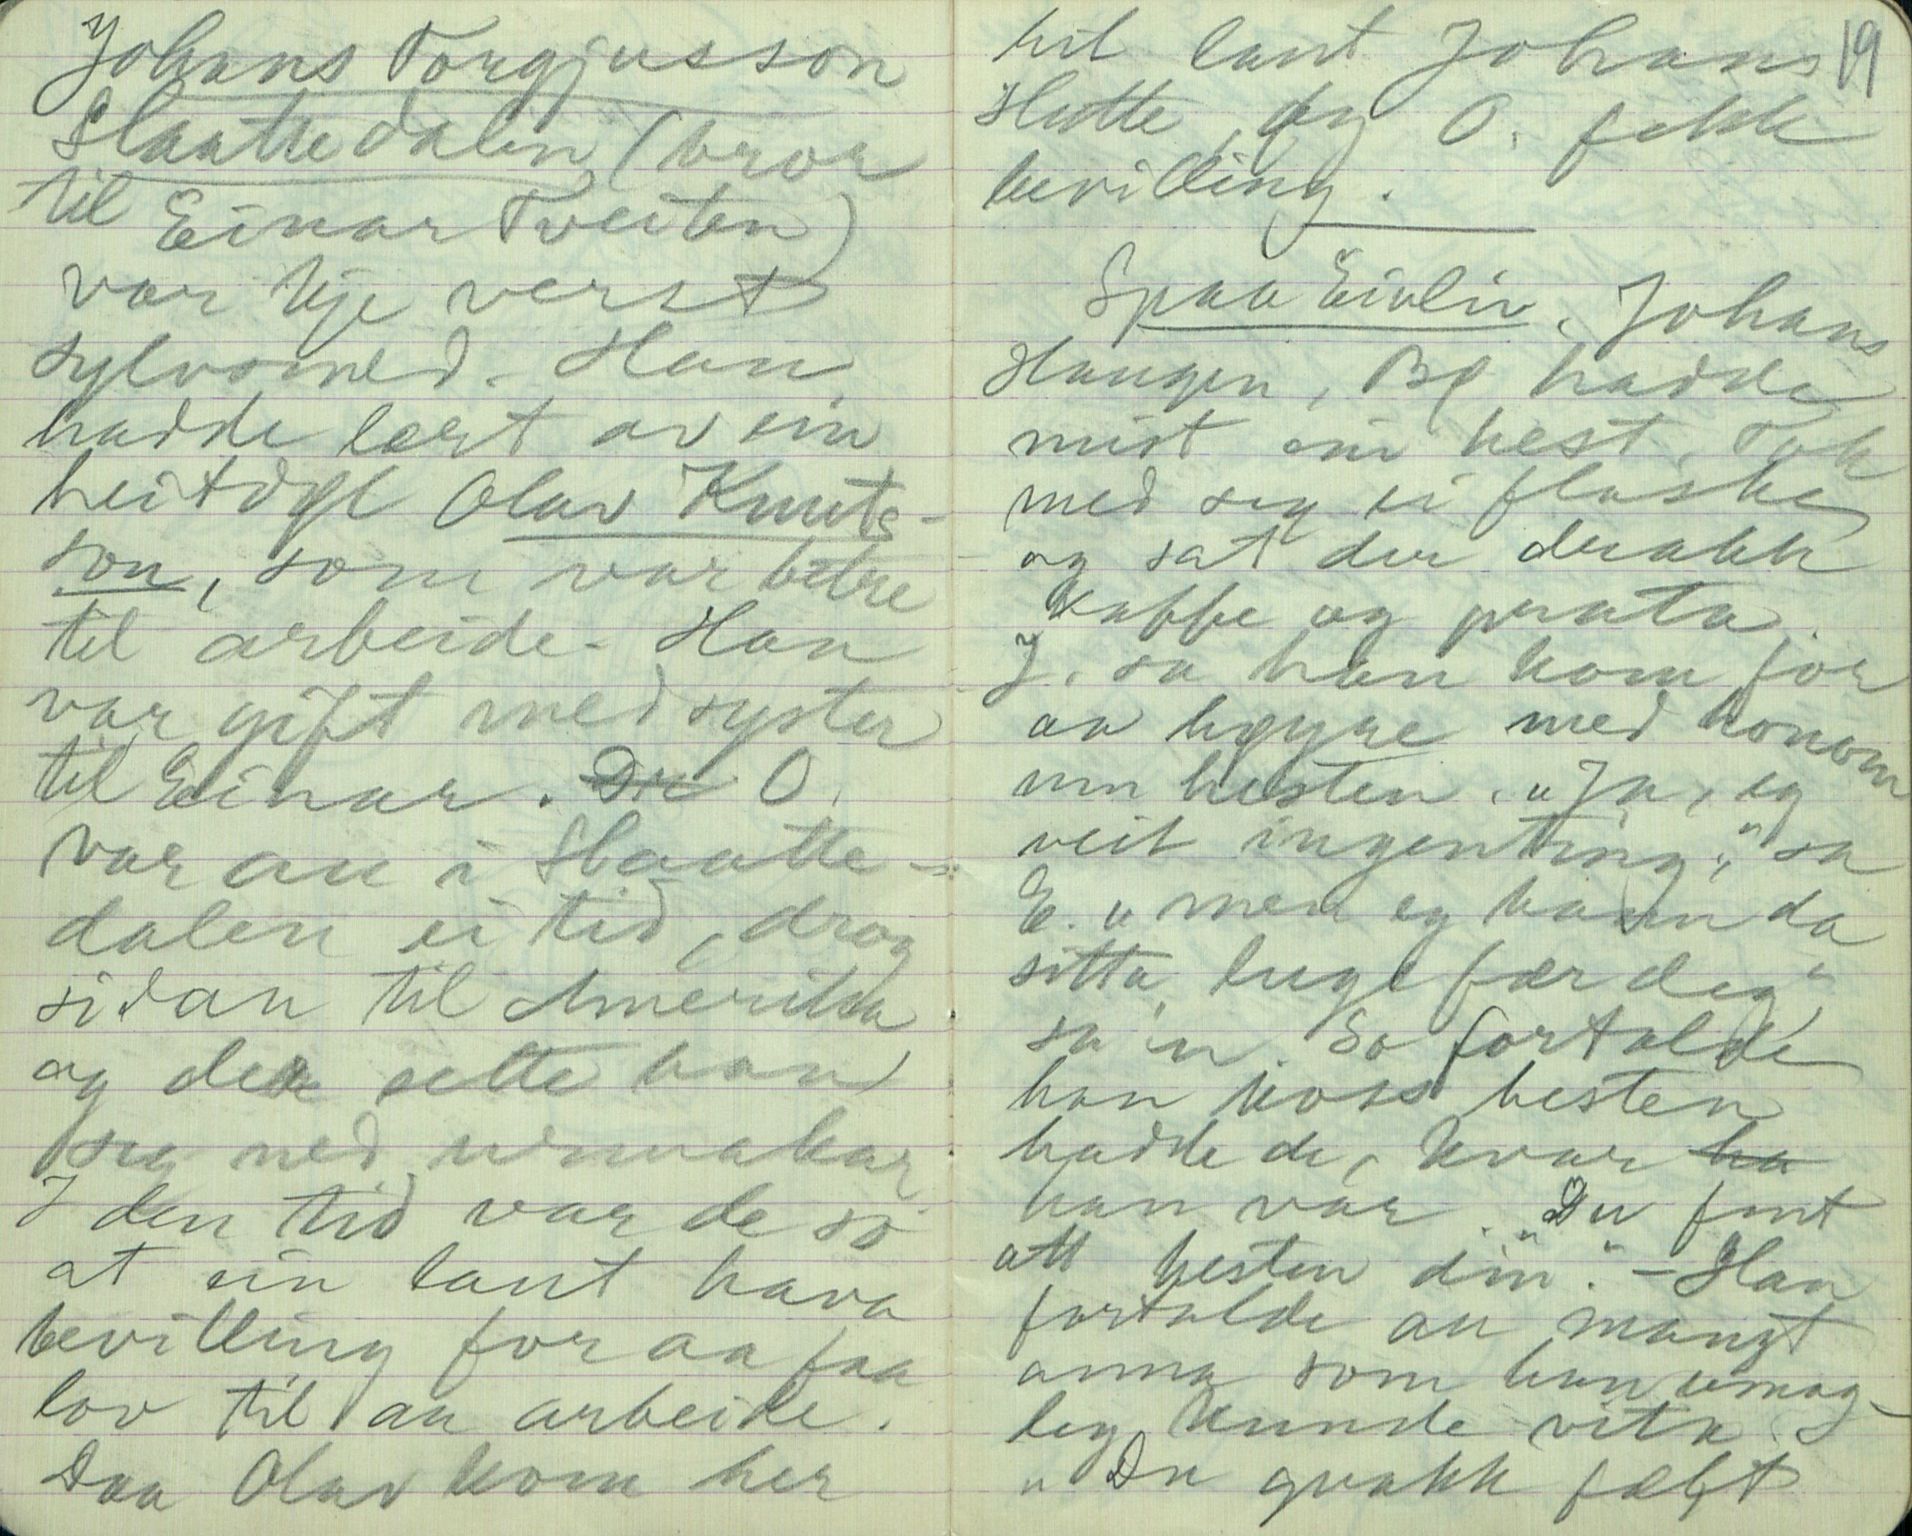 Johans Torgjusson
Slaattedalen (bror
til Einar Tveiten)
var kje verst
sylvsmed. Han
hadde lært av ein
heitogl Olav Knuts-
son, som var betre
til arbeide. Han
var gift med syster
til Einar. O.
var au i Slaatte-
dalen ei tid, drog
sidan til Amerika
og der sette han
seg ned urmakar
I den tid var de so
at ein laut hava
bevilling for aa faa
lov til aa arbeide.
Daa Olav kom her
19
til laut Johans
slutte, og O. fekk
bevilling.
Spaa Eivliv. Johans
Haugen, Bø hadde
mist ein hest. Tok
med seg ei flaske
og sat der drakk
kaffe og prata.
J. sa han kom for
aa høyre med honom
um hesten. "Ja, eg
veit ingenting," sa
E. "men eg kann da
sitta ljuge før deg"
sa'n. So fortalde
han koss hesten
hadde de, kvar ha
han var. "Du fint
att hesten din." - Han
fortalde au mangt
anna som han umog-
leg kunde vita.
"Du gvakk fælt